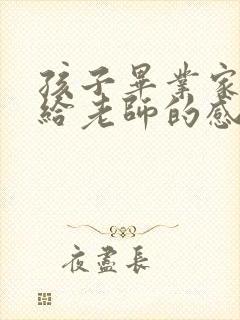 孩子畢業家
給老師的感
夜盡長